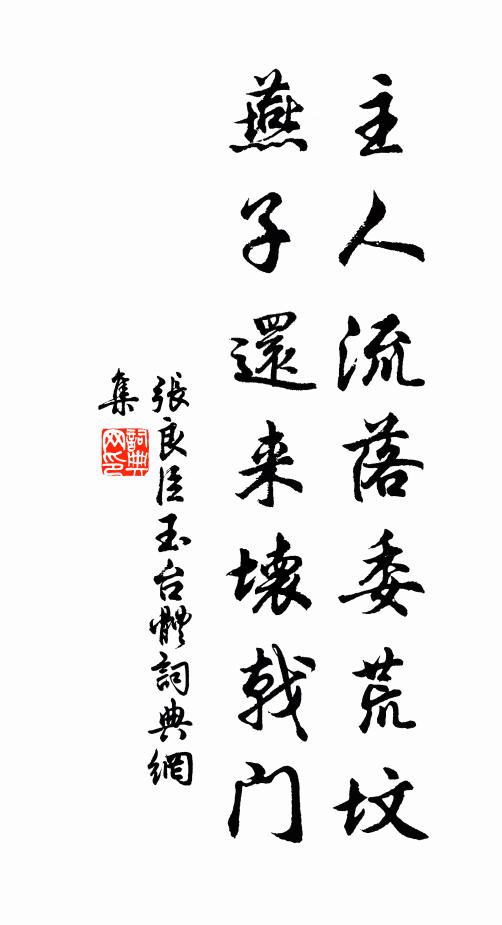 主人流落委荒墳
燕子還来壊戟门
張良臣玉台體詞典網
集
詞典
网印